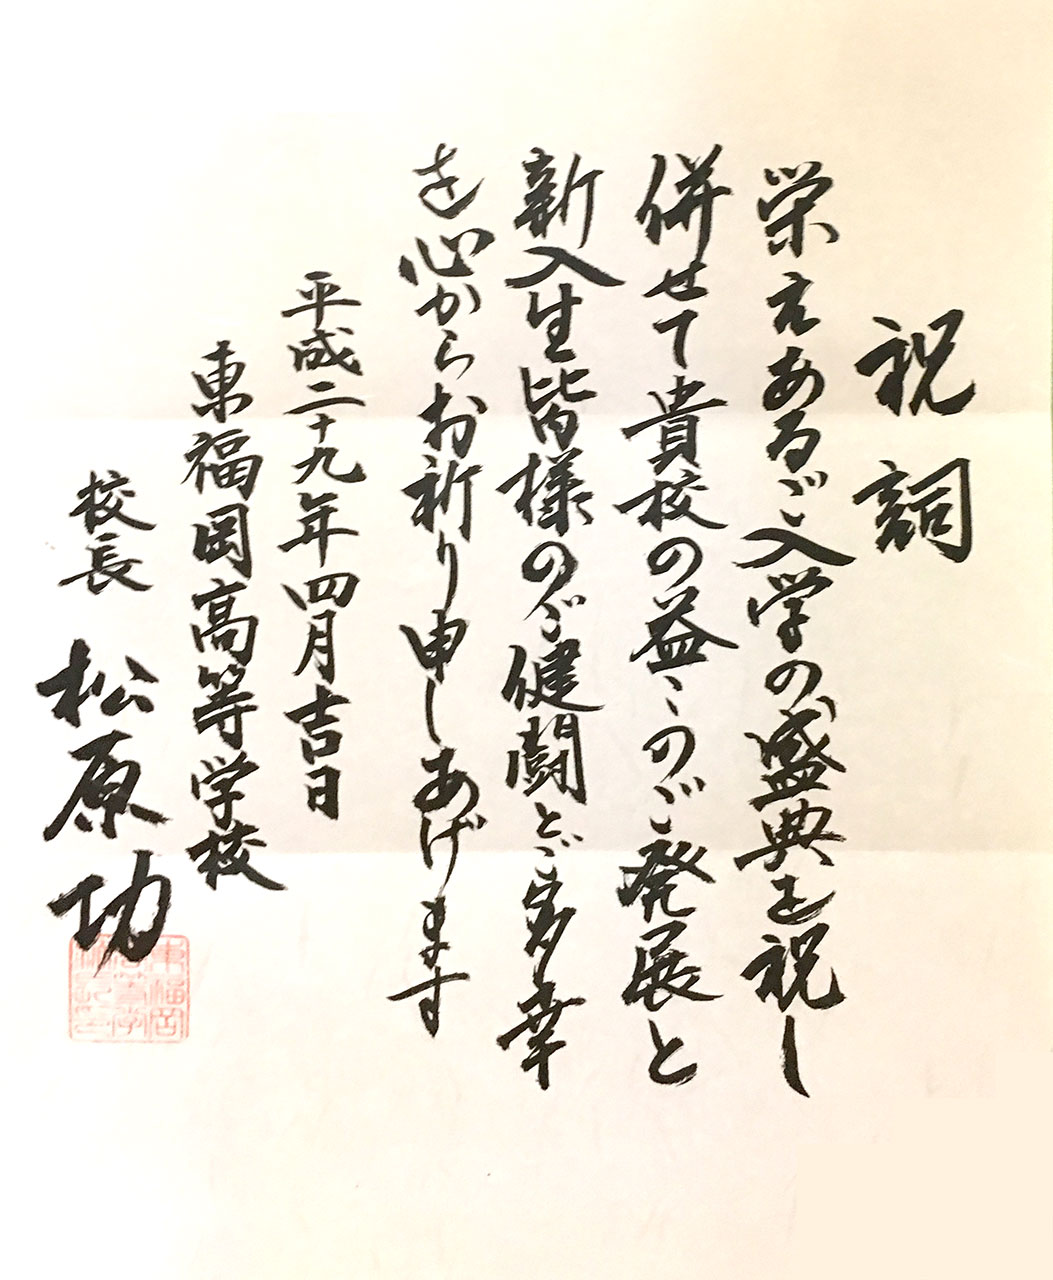 祝詞
栄えあるご入学の盛典を祝し
併せて貴校の益々のご発展と
新入生皆様のご健闘とご多幸
を心からお祈り申しあげます
平成二十九年四月吉日
東福岡高等学校
校長 松原功